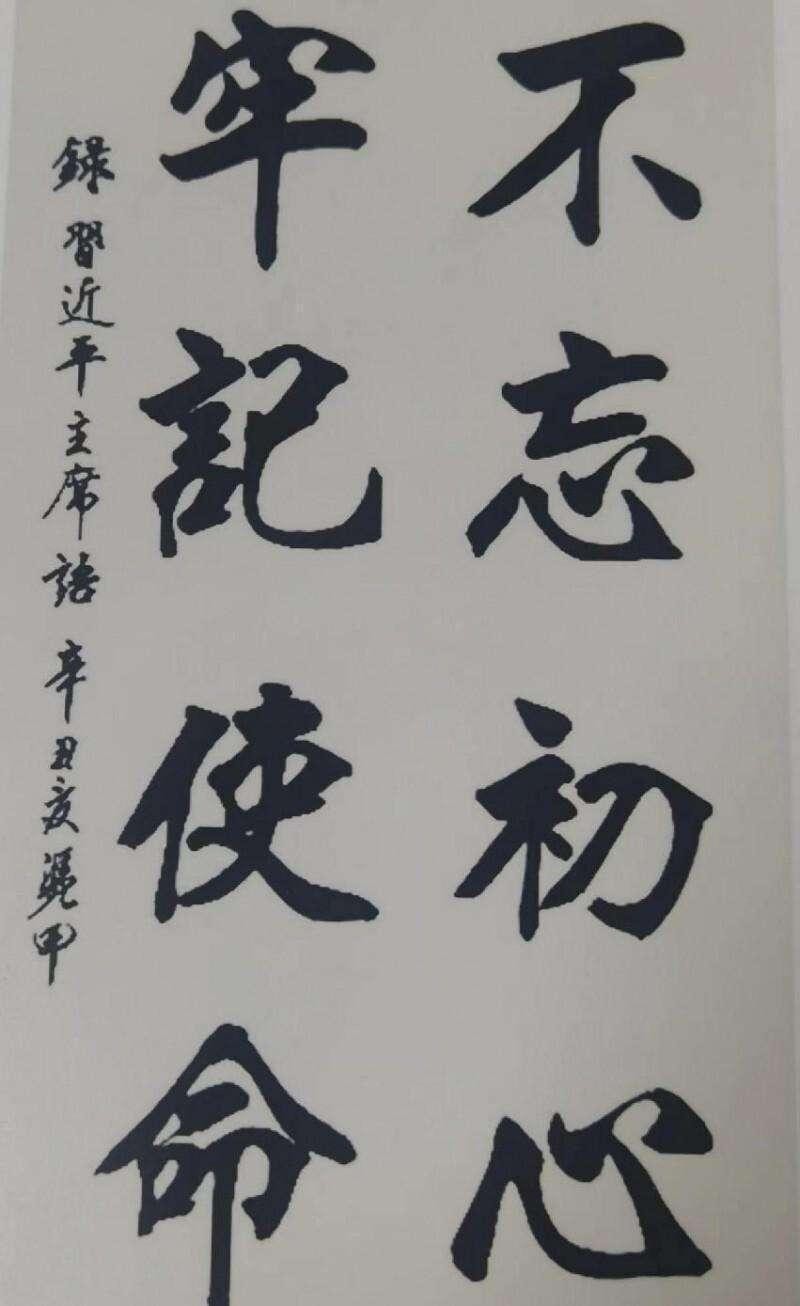 不忘初心
牢記使命
録習近平主席語 辛丑夏 甲